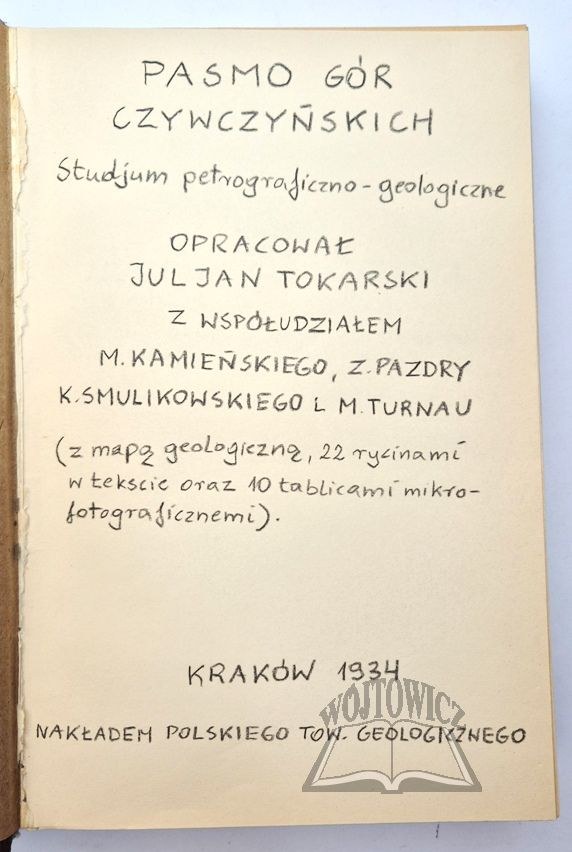 PASMO GÓR
CZYWCZYŃSKICH
Studjum petrograficzno-geologiczne
OPRACOWAŁ
JULJAN TOKARSKI
Z WSPÓŁUDZIAŁEM
M. KAMIEŃSKIEGO, Z. PAZDRY
K. SMULIKOWSKIEGO I M. TURNAU
(z mapą geologiczną, 22 rycinami
w tekście oraz 10 tablicami mikro-
fotograficznemi).
KRAKÓW 1934
WÓJTOWICZ
NAKŁADEM POLSKIEGO TOW. GEOLOGICZNEGO